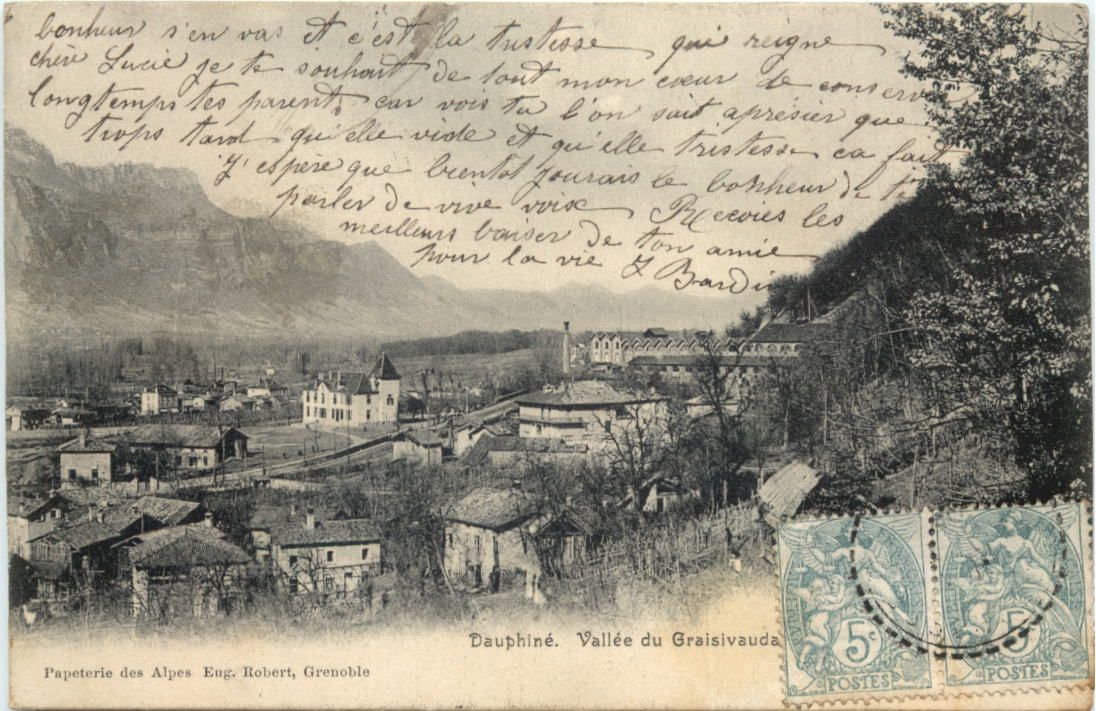 bonheur s'en vas et c'est la tristesse qui reigne
chère Lucie je te souhait de tout mon cœur de conserver
longtemps tes parents car vois tu l'on sait aprésier que
trops tard qu'elle vide et qu'elle tristesse ca fait
J'espère que bientot jourais le bonheur de
parler de vive voix Recevies les
meilleurs baiser de ton amie
pour la vie J Bardin
Dauphiné. Vallée du Graisivauda
Papeterie des Alpes Eug. Robert, Grenoble
5c 5c
POSTES POSTES